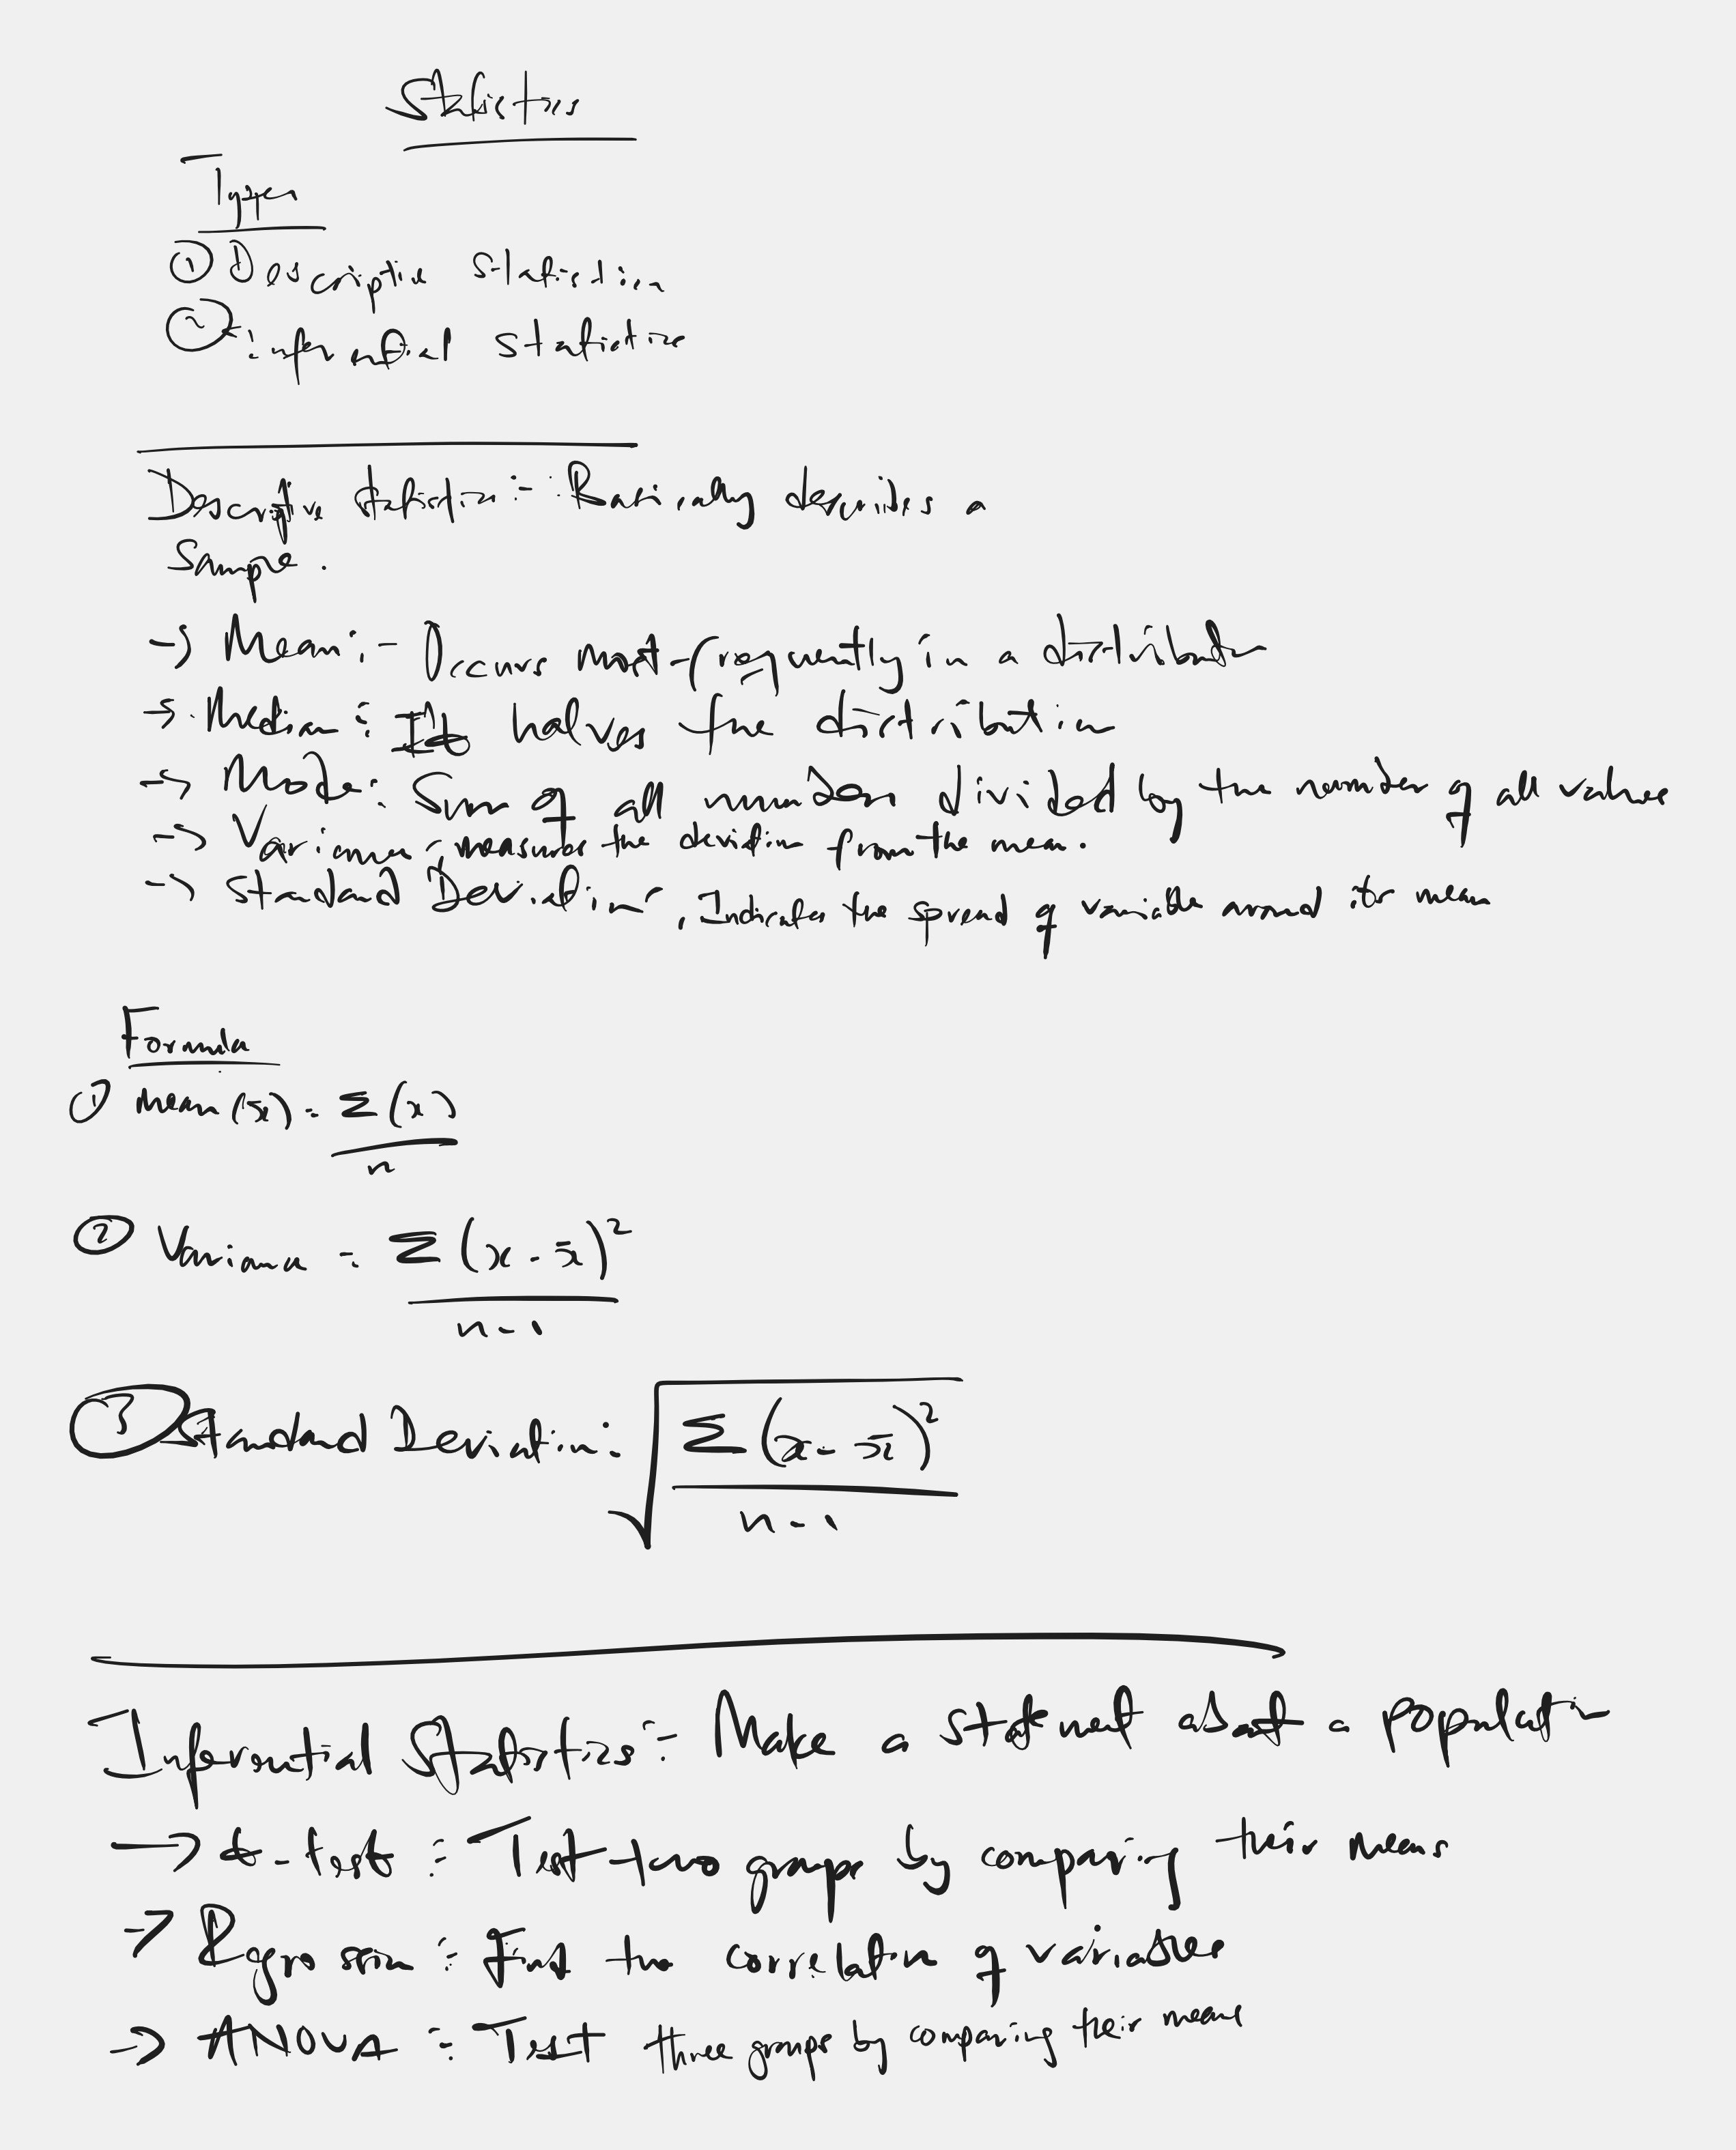 Statistics
Types
① Descriptive Statistics
② inferential statistics
Descriptive Statistics :- Basically describes a
Sample.
→ Mean :- Occurs most frequently in a distribution
→ Median : It halves the distribution
→ Mode : Sum of all numbers divided by the number of all values
→ Variance : measures the deviation from the mean.
→ Standard Deviation : Indicates the spread of variable around its mean
Formula
① Mean (x̄) = Σ(x) / n
② Variance = Σ(x - x̄)² / n-1
③ Standard Deviation = √(Σ(x - x̄)² / n-1)
Inferential Statistics :- Make a statement about a population
→ t-test : Test two groups by comparing their means
→ Regression : Find the correlation of variables
→ ANOVA : Test three groups by comparing their means